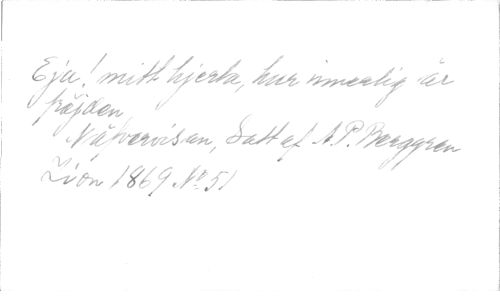 Eja! mitt hjerta, hur innerlig är
fröjden
Nättervisan, Satt af A. P. Berggren
Zion 1869 No 51